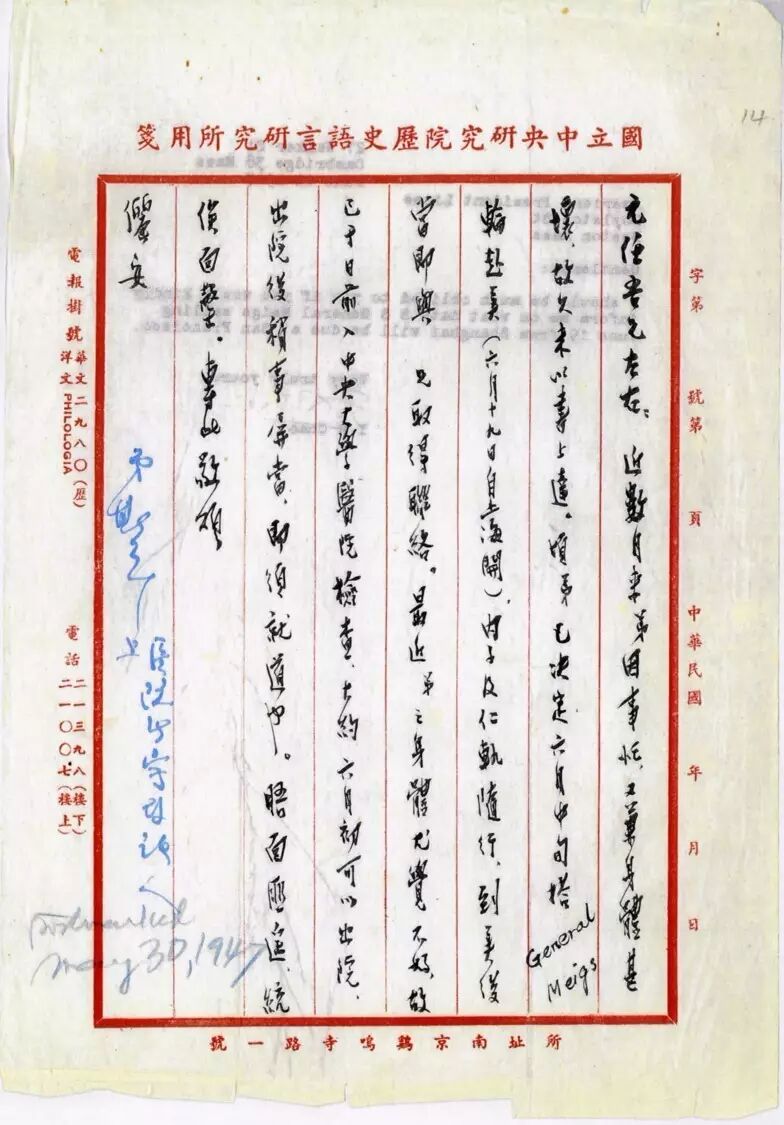 14.
國立中央研究院歷史語言研究所用箋
字第 號第 頁 中華民國 年 月 日
元任吾兄左右:近數月來弟因事忙,又兼身體甚
壞,故久未以書上達。頃弟已決定六月中旬搭 General Meigs
輪赴美(六月十九日自上海開),內子及仁軌隨行,到美後
當即與 兄取得聯絡。最近弟之身體尤覺不好,故
已于日前入中央大學醫院檢查,大約六月初可以出院,
出院後稍事屏當,即須就道也。晤面匪遙,統
俟面罄。專此敬頌
儷安
弟斯年上
Postmarked
May 30, 1947
電報掛號 華文二九八〇(歷)
洋文 PHILOLOGIA
電話 二一三九八(樓下)
二一〇〇七(樓上)
所址南京鷄鳴寺路一號